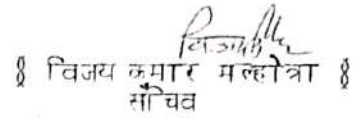 § विजय कुमार मल्होत्रा §
सचिव